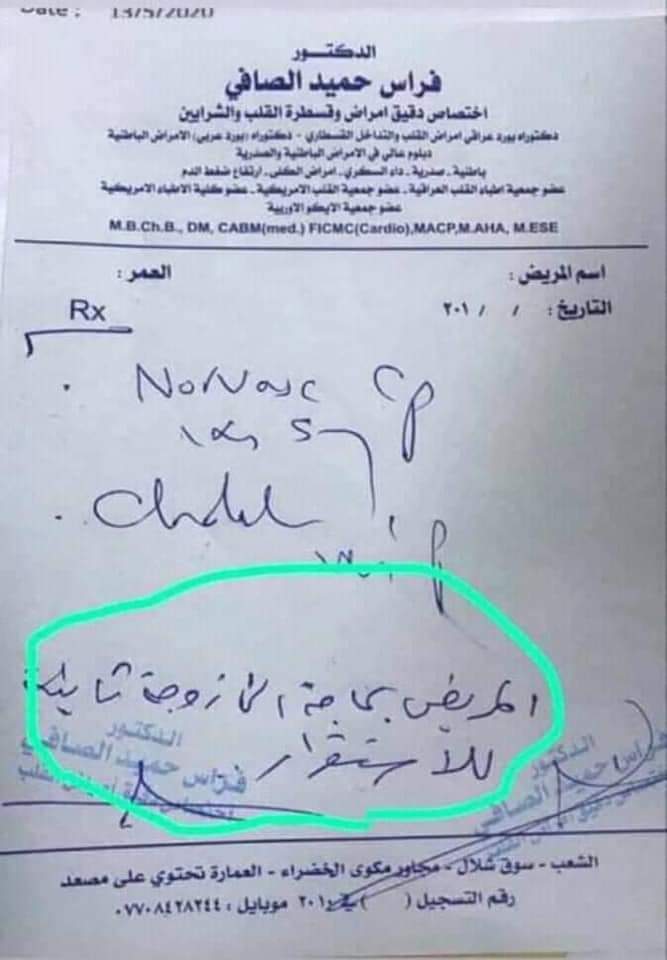 Date : 13/5/2020
الدكتـــور
فراس حميد الصافي
اختصاص دقيق امراض وقسطرة القلب والشرايين
دكتوراه بورد عراقي امراض القلب والتداخل القسطاري - دكتوراه (بورد عربي) الامراض الباطنية
دبلوم عالي في الامراض الباطنية والصدرية
باطنية ـ صدرية ـ داء السكري ـ امراض الكلى ـ ارتفاع ضغط الدم
عضو جمعية اطباء القلب العراقية ـ عضو جمعية القلب الامريكية ـ عضو كلية الاطباء الامريكية
عضو جمعية الايكو الاوربية
M.B.Ch.B., DM, CABM(med.) FICMC(Cardio),MACP,M.AHA, M.ESE
اسم المريض : العمر :
التاريخ : / / ٢٠١
Rx
Norvasc
المريض بحاجة الى زوجة ثانية
للأستقرار
الدكتور
فراس حميد الصافي
الدكتور
فراس حميد الصافي
الشعب - سوق شلال - مجاور مكوى الخضراء - العمارة تحتوي على مصعد
رقم التسجيل ( ) في ٢٠١ موبايل : ٠٧٧٠٨٤٢٨٢٤٤